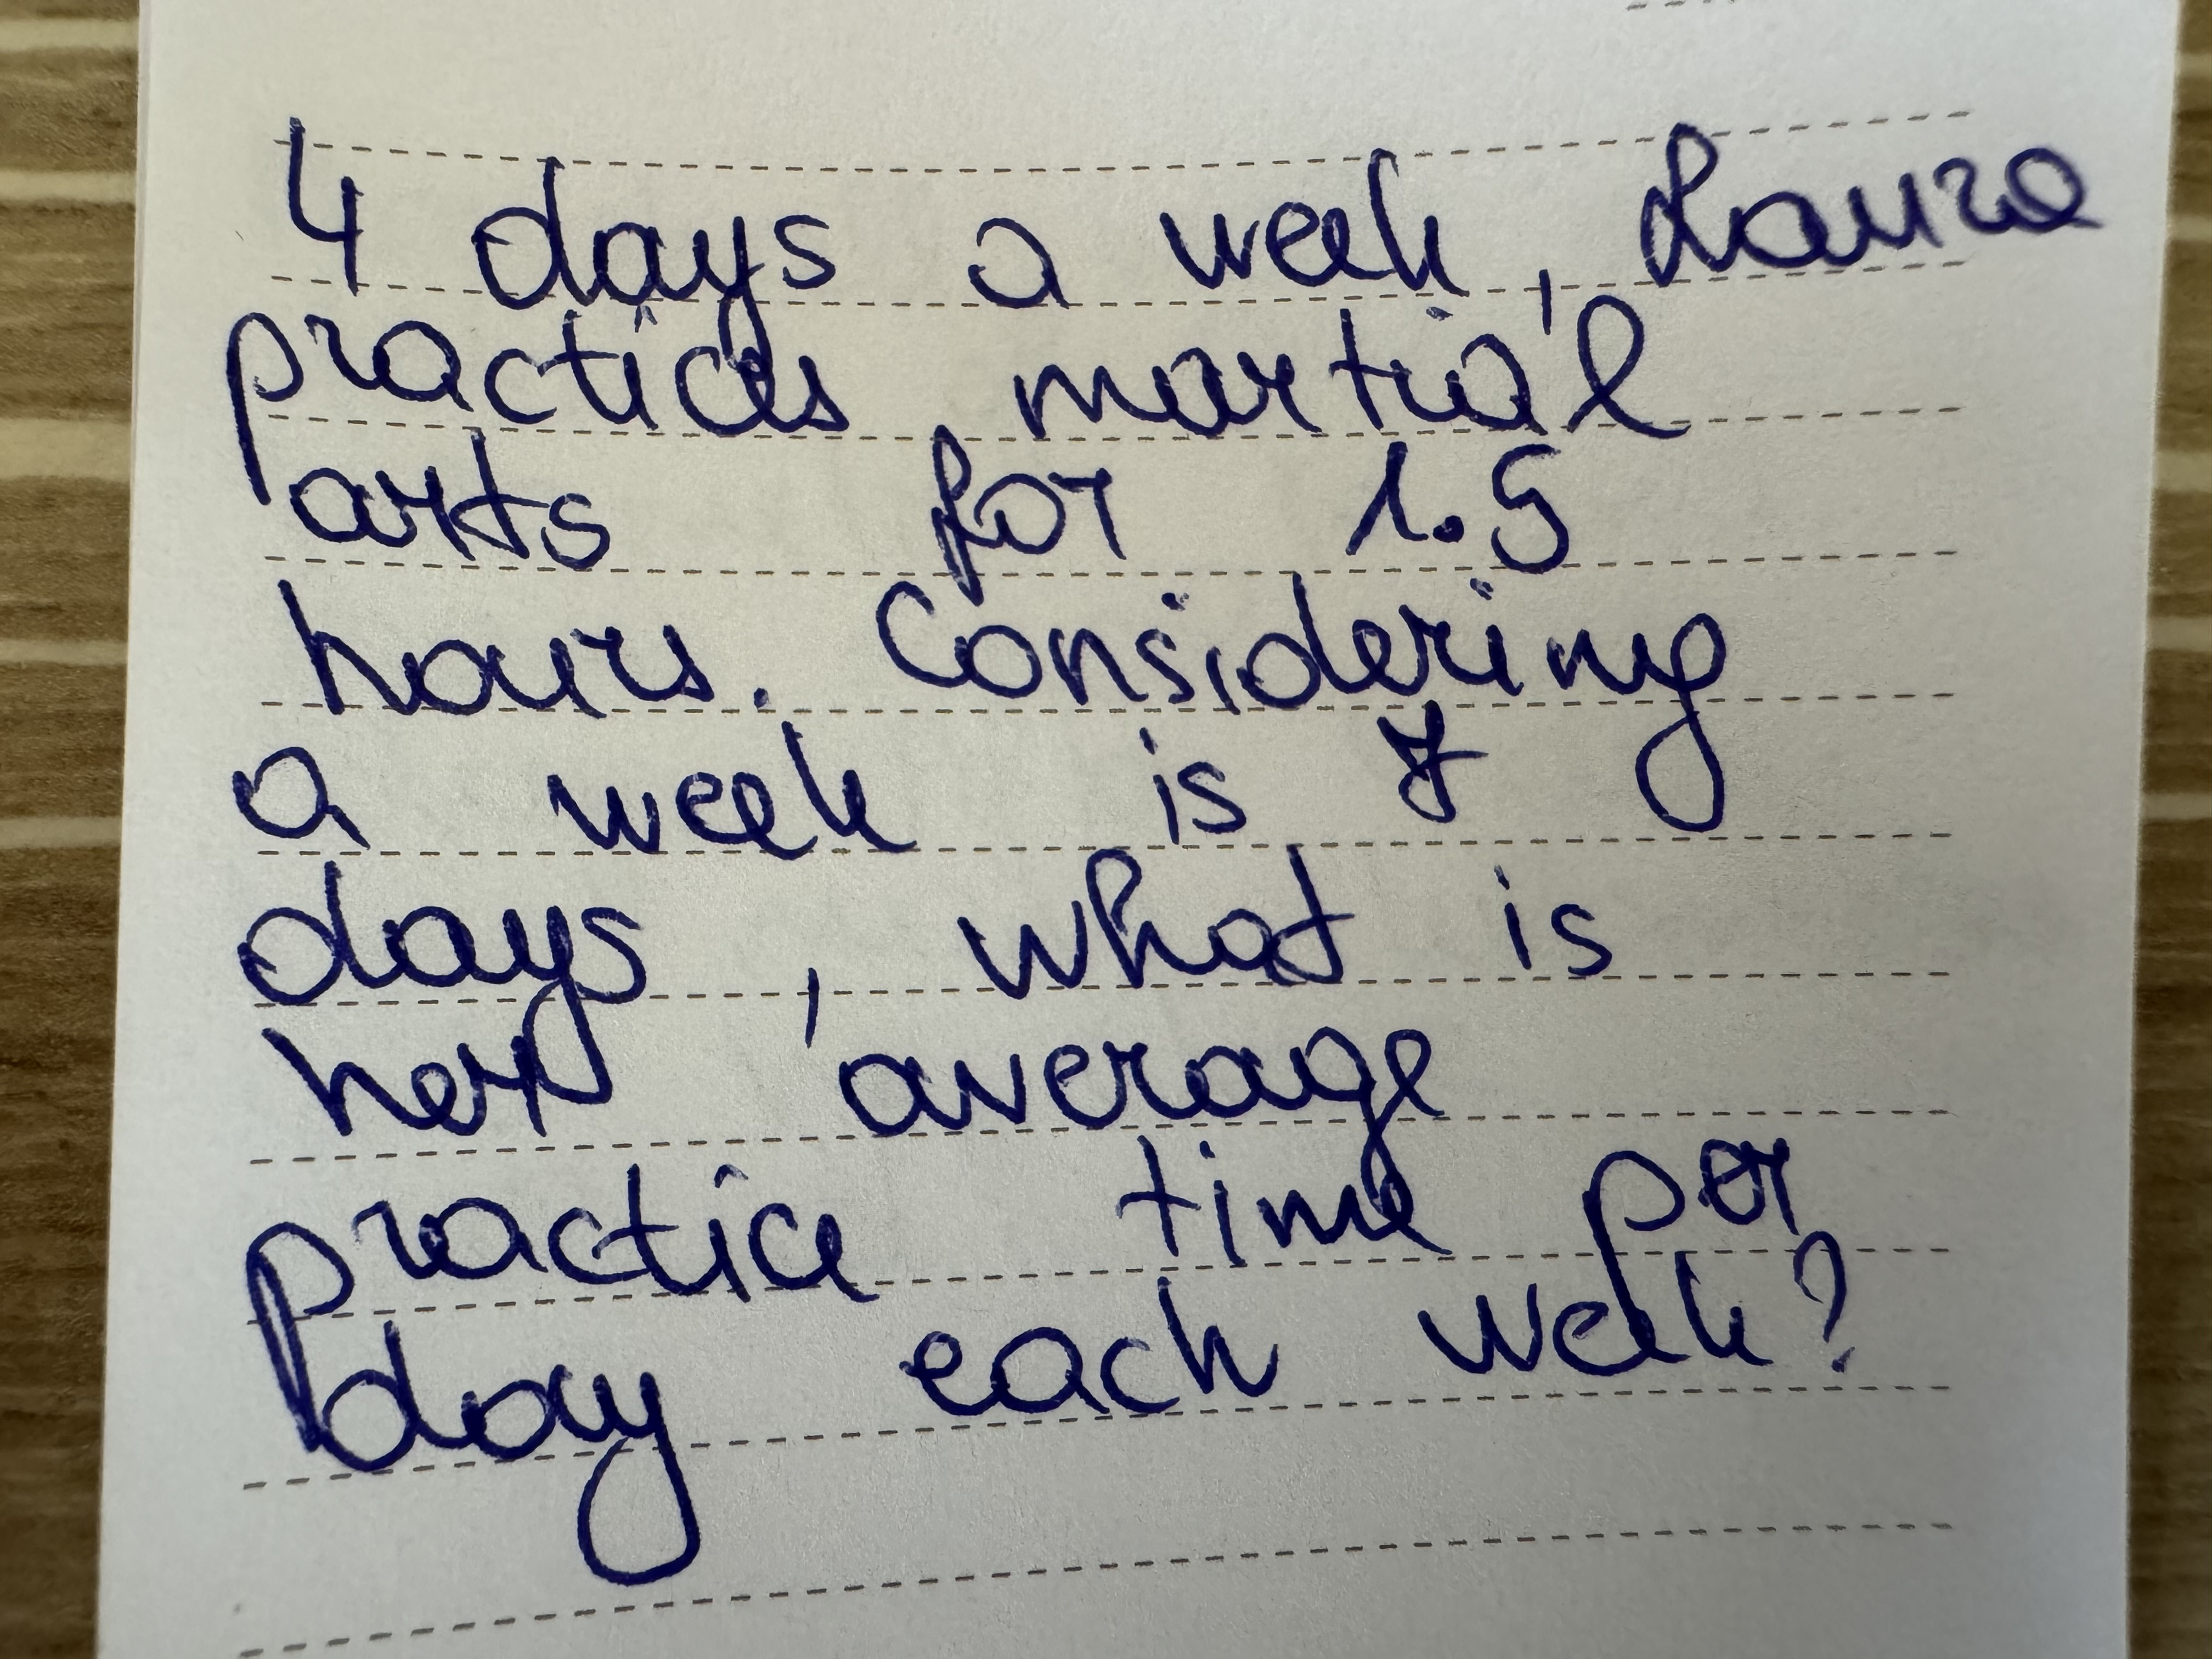 4 days a week, Laura
practices martial
arts for 1.5
hours. Considering
a week is 7
days, what is
her average
practice time per
day each week?